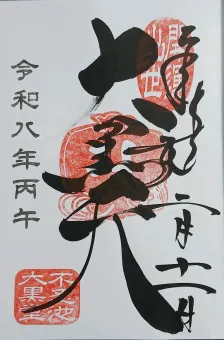 奉拝
二月十一日
大黒天
令和八年丙午
不忍池
大黒堂